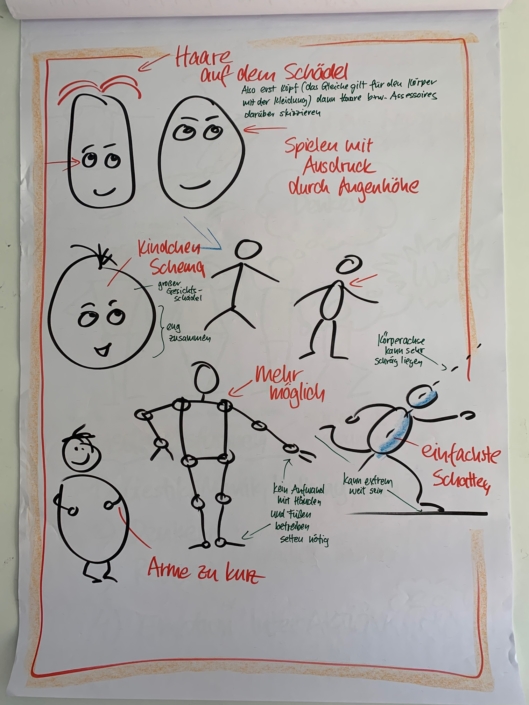 Haare
auf dem Schädel
Also erst Kopf (das Gleiche gilt für den Körper
mit der Kleidung) dann Haare bzw. Assessoires
darüber skizzieren
Spielen mit
Ausdruck
durch Augenhöhe
Kindchen
Schema
großer
Gesichts-
schädel
eng
zusammen
Körperachse
kann sehr
schräg liegen
mehr
möglich
einfachste
Schatten
kein Aufwand
mit Händen
und Füßen
betreiben
selten nötig
kann extrem
weit sein
Arme zu kurz